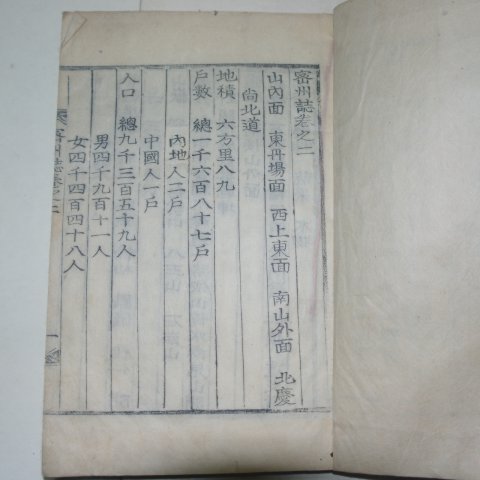 密州誌卷之二
山內面　東丹場面　西上東面　南山外面　北慶
尙北道
地積　六方里八九
戶數　總一千六百八十七戶
內地人二戶
中國人一戶
人口　總九千三百五十九人
男四千九百十一人
女四千四百四十八人
密州誌卷之二
一